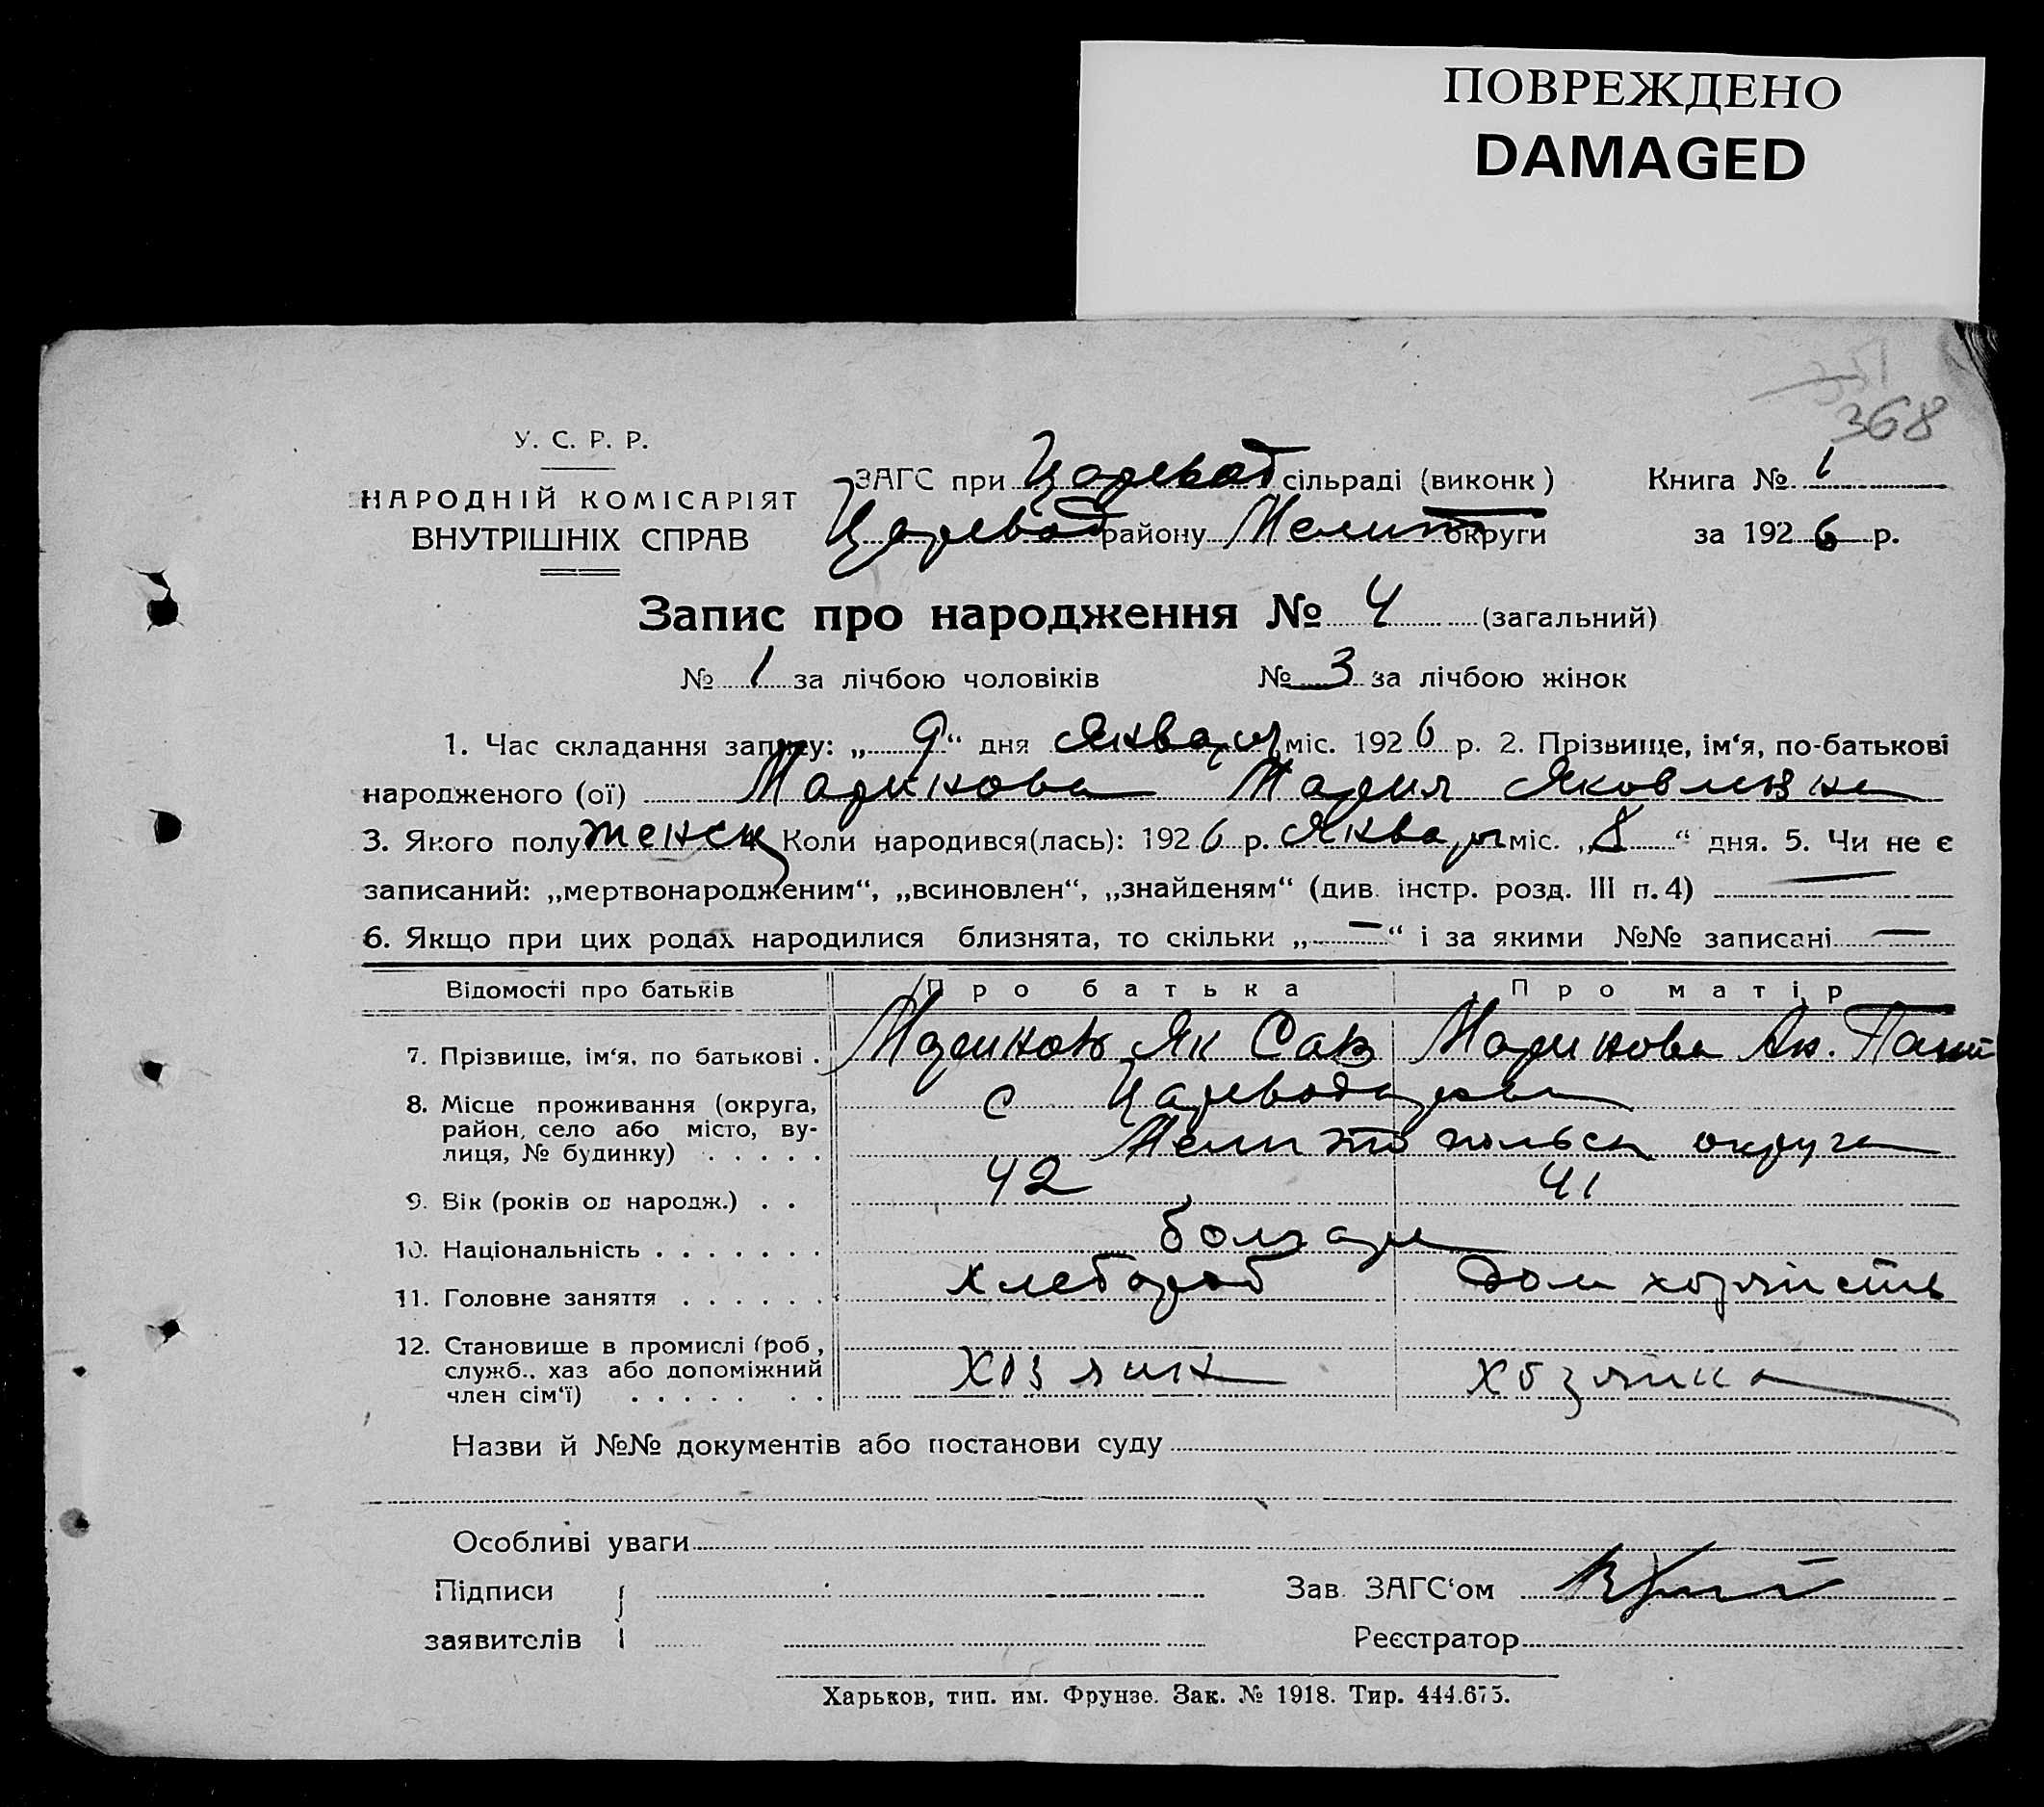 ПОВРЕЖДЕНО
DAMAGED
368
У. С. Р. Р.
НАРОДНІЙ КОМІСАРІЯТ
ВНУТРІШНІХ СПРАВ
ЗАГС при Царевод сільраді (виконк)
Царевод району Мелит округи
Книга № 1
за 1926 р.
Запис про народження № 4 (загальний)
№ 1 за лічбою чоловіків № 3 за лічбою жінок
1. Час складання запису: „9“ дня Января міс. 1926 р. 2. Прізвище, ім‘я, по-батькові
народженого (ої) Маринова Мария Яковлевна
3. Якого полу женск 4. Коли народився(лась): 1926 р. Января міс. „8“ дня. 5. Чи не є
записаний: „мертвонародженим“, „всиновлен“, „знайденям“ (див. інстр. розд. III п. 4) —
6. Якщо при цих родах народилися близнята, то скільки „—“ і за якими №№ записані —
Відомості про батьків Про батька Про матір
7. Прізвище, ім‘я, по батькові . Маринов Як Сав Маринова Ан.
8. Місце проживання (округа, район, село або місто, вулиця, № будинку) . . . . . с Цареводаровка
Мелитопольск округа
9. Вік (років од народж.) . . 42 41
10. Національність . . . . . . . болгаре
11. Головне заняття . . . . . . хлебороб Дом хозяйств
12. Становище в промислі (роб, служб., хаз або допоміжний член сім‘ї) . . . . . . . хозяин хозяйка
Назви й №№ документів або постанови суду
Особливі уваги
Підписи
заявителів
Зав. ЗАГС‘ом
Реєстратор
Харьков, тип. им. Фрунзе. Зак. № 1918. Тир. 444.675.